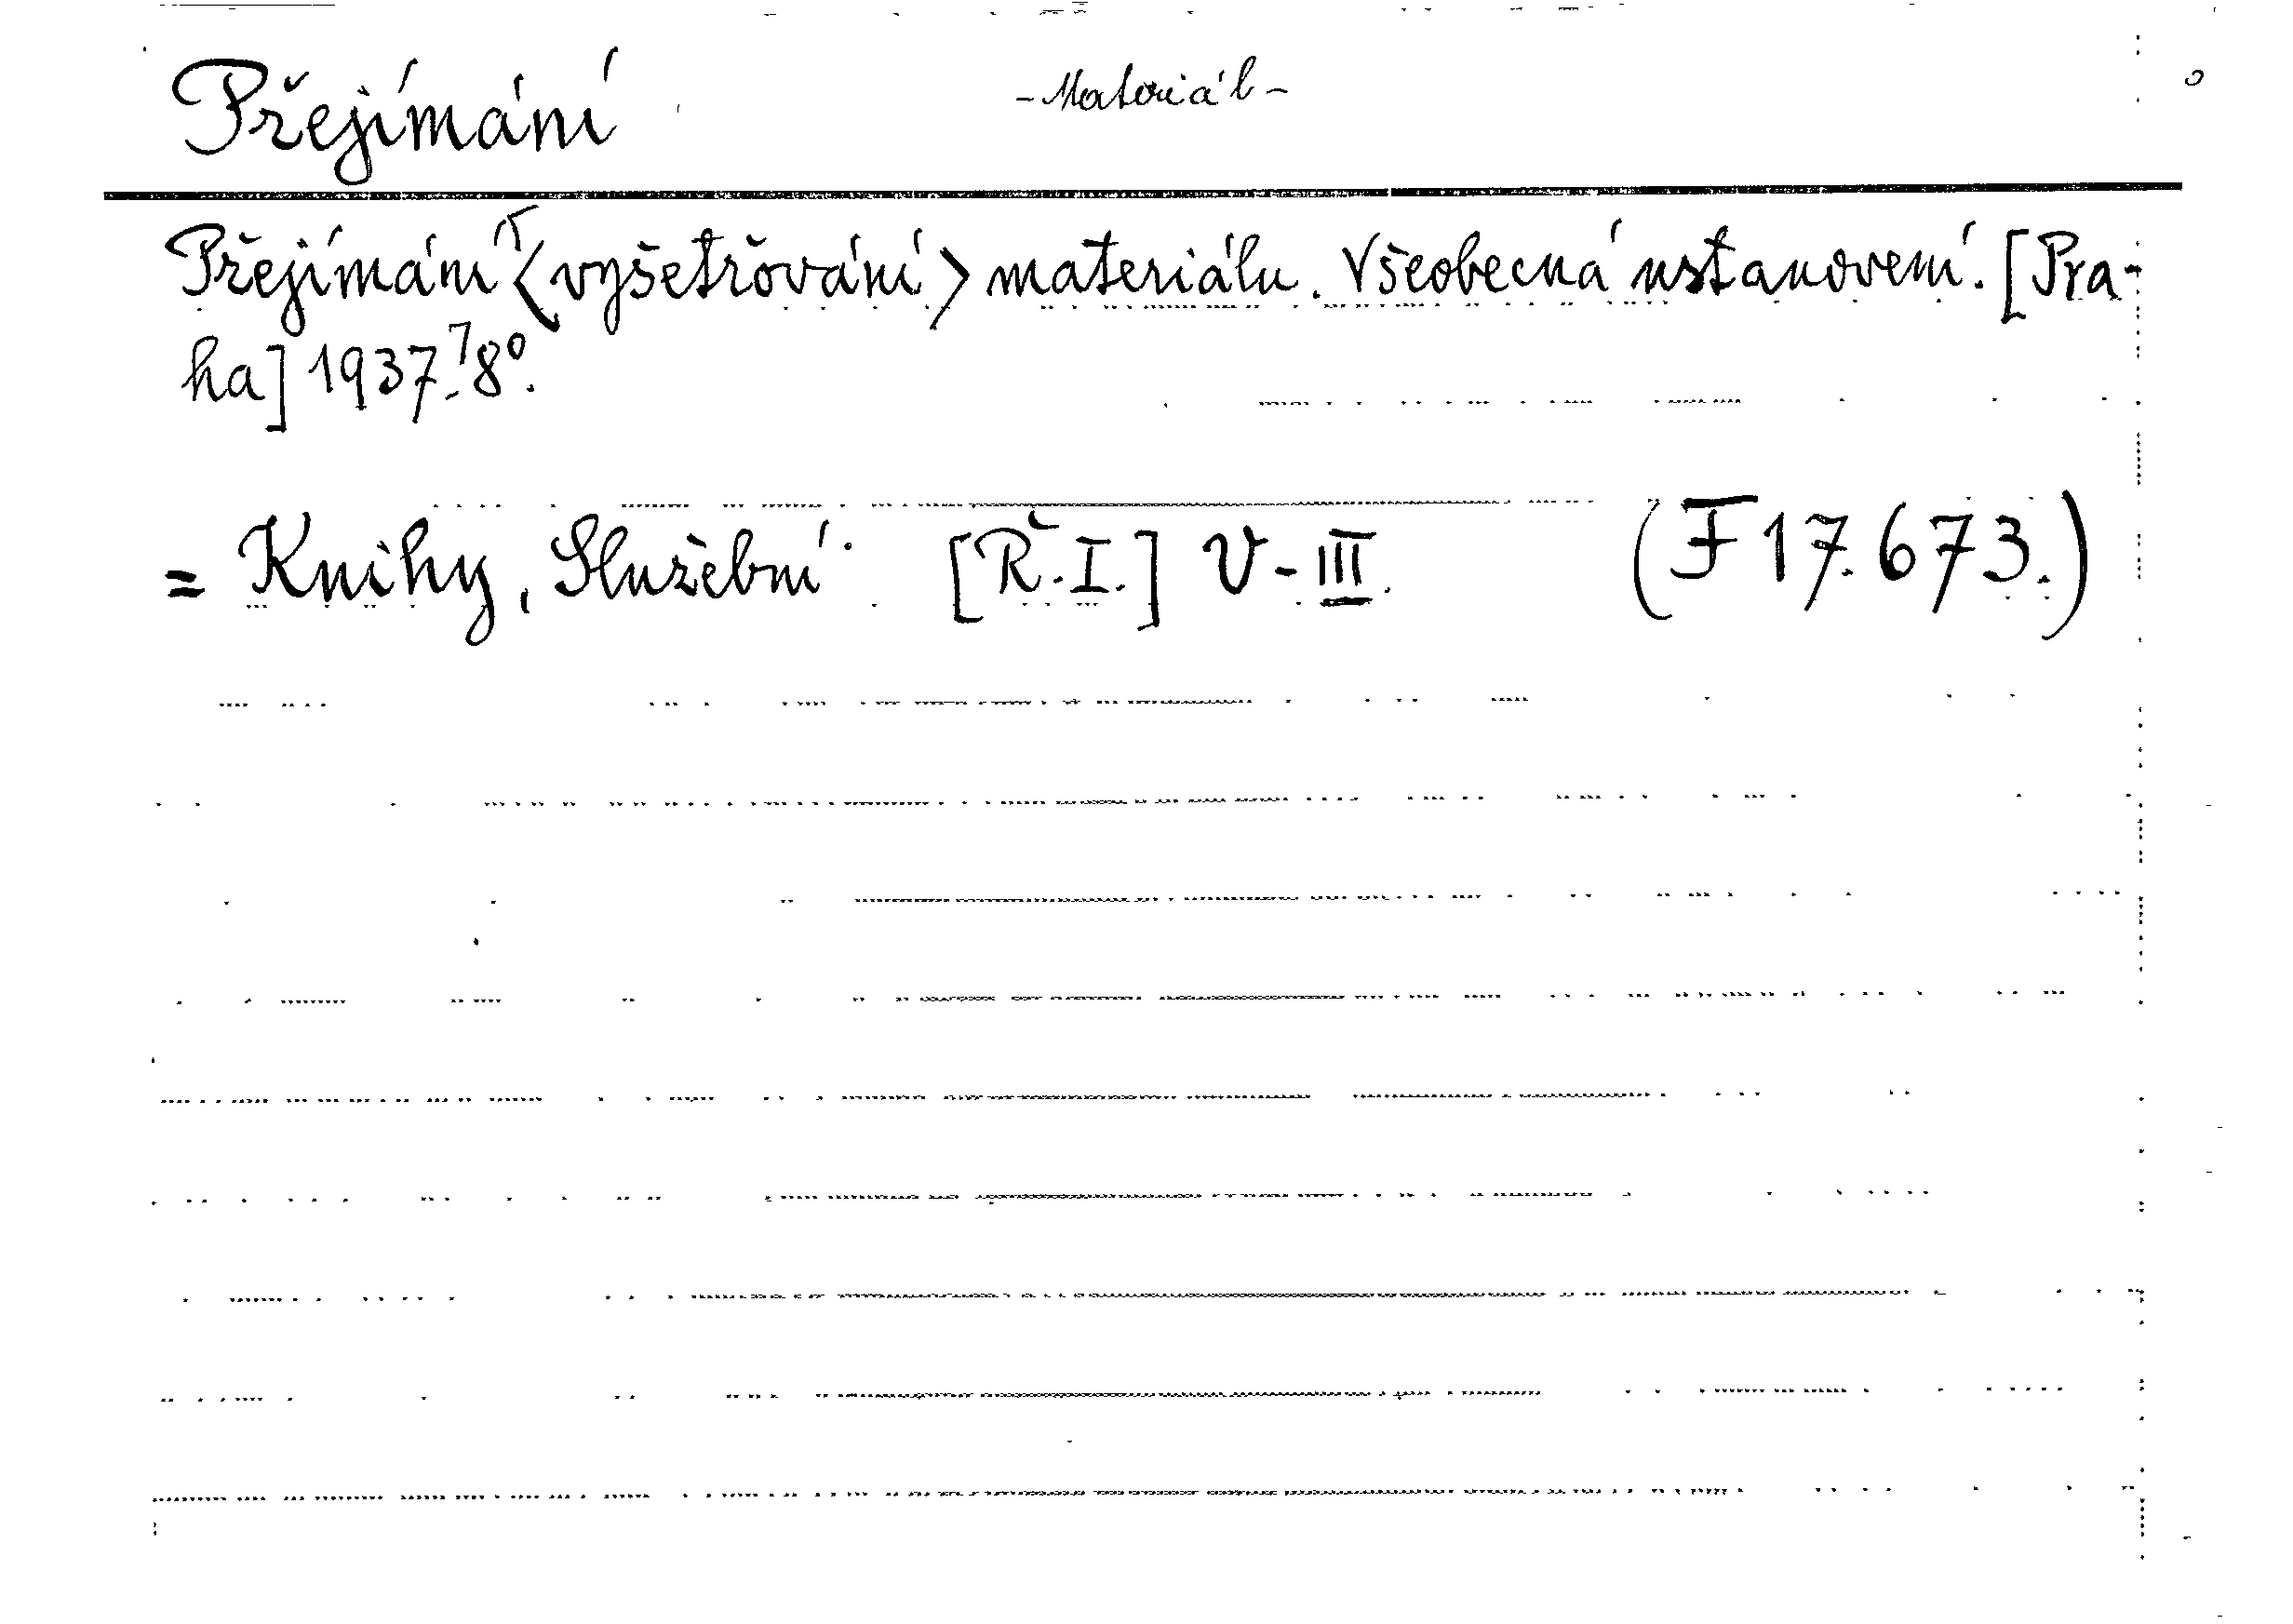 Přejímání -Materiál-
Přejímání <vyšetřování> materiálu. Všeobecná ustanovení. [Pra-
ha] 1937. 8°.
= Knihy, Služební [Ř.I.] V-III. (F 17.673.)